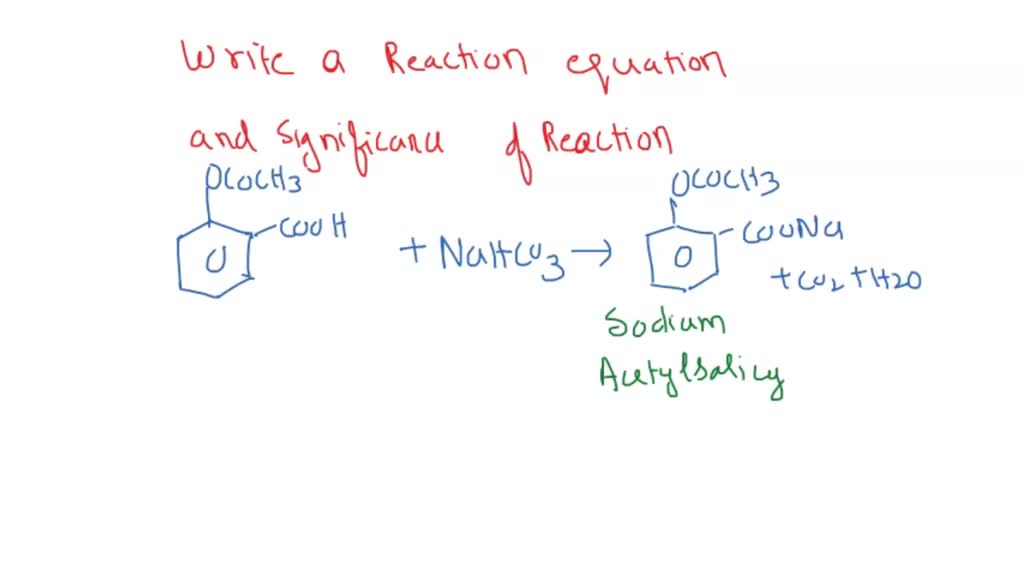 Write a Reaction equation
and Significance of Reaction
OCOCH3
COOH
+ NaHCO3 →
OCOCH3
COONa
+ CO2 + H2O
Sodium
Acetylsalicy